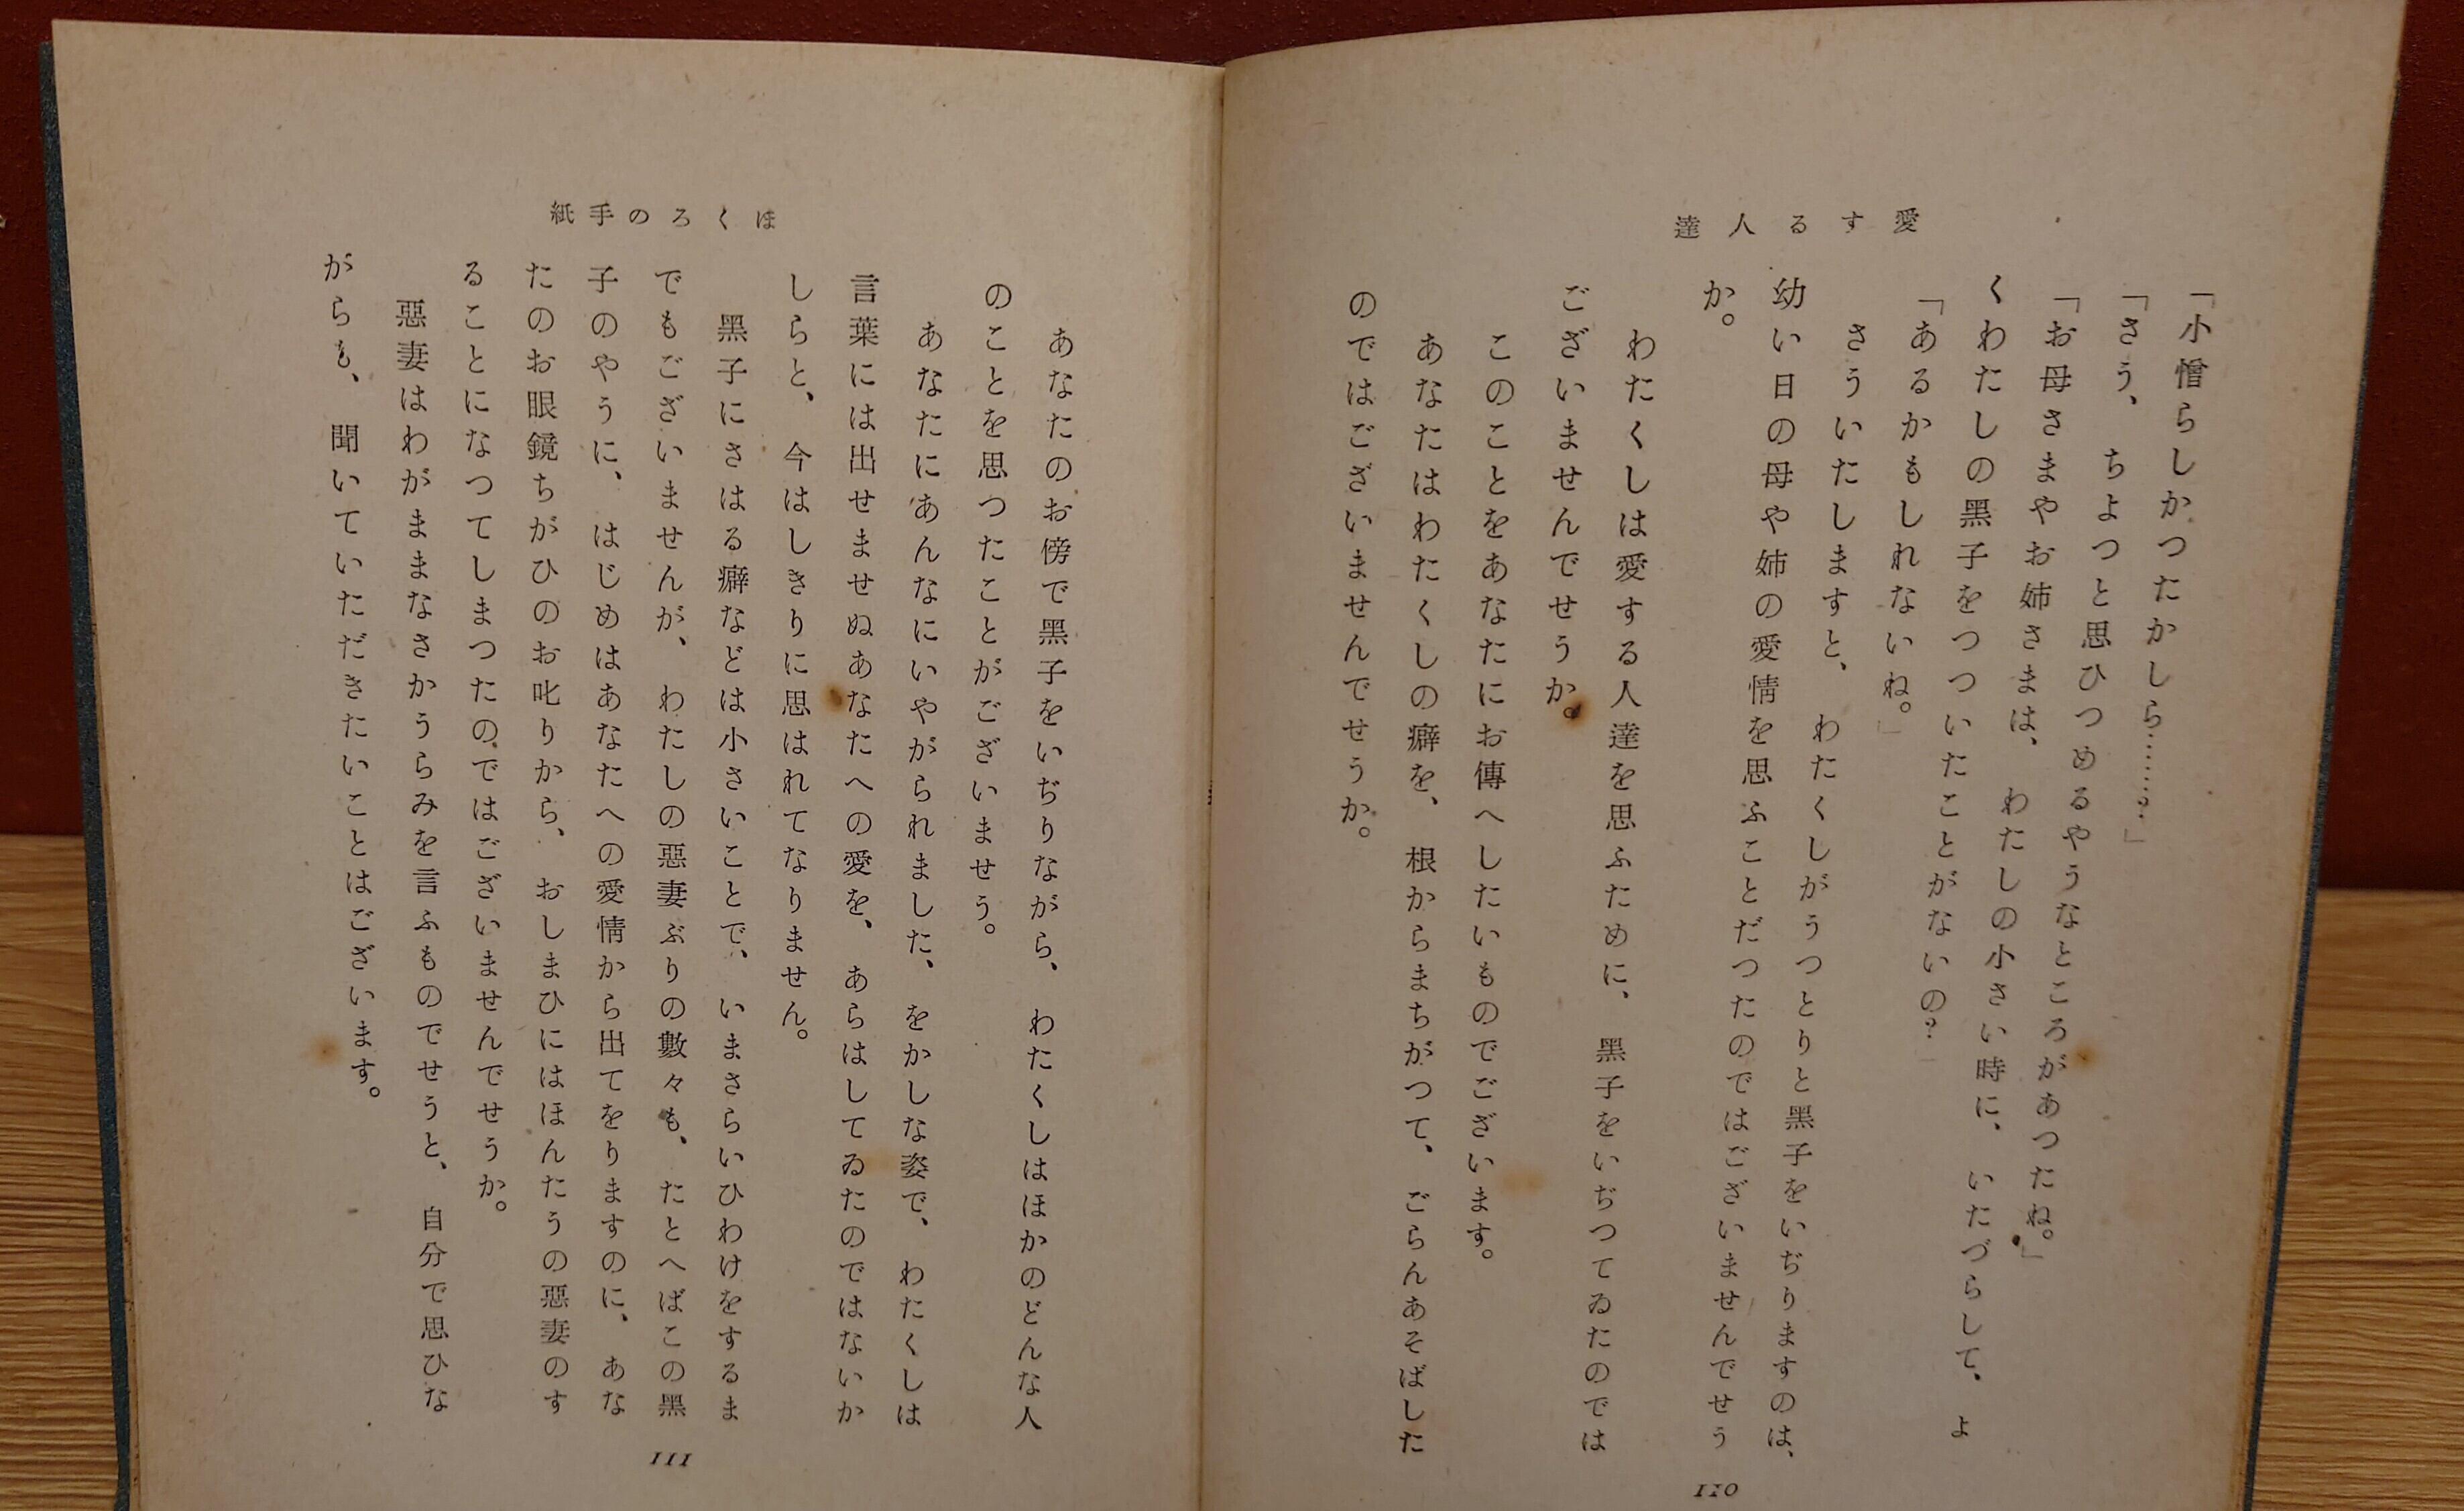 愛する人達
「小憎らしかつたかしら……?」
「さう、ちよつと思ひつめるやうなところがあつたね。」
「お母さまやお姉さまは、わたしの小さい時に、いたづらして、よ
くわたしの黑子をつついたことがないの?
「あるかもしれないね。」
さういたしますと、わたくしがうつとりと黑子をいぢりますのは、
幼い日の母や姉の愛情を思ふことだつたのではございませんでせう
か。
わたくしは愛する人達を思ふために、黑子をいぢつてゐたのでは
ございませんでせうか。
このことをあなたにお傳へしたいものでございます。
あなたはわたくしの癖を、根からまちがつて、ごらんあそばした
のではございませんでせうか。
110
ほくろの手紙
あなたのお傍で黑子をいぢりながら、わたくしはほかのどんな人
のことを思つたことがございませう。
あなたにあんなにいやがられました、をかしな姿で、わたくしは
言葉には出せませぬあなたへの愛を、あらはしてゐたのではないか
しらと、今はしきりに思はれてなりません。
黑子にさはる癖などは小さいことで、いまさらいひわけをするま
でもございませんが、わたしの惡妻ぶりの數々も、たとへばこの黑
子のやうに、はじめはあなたへの愛情から出てをりますのに、あな
たのお眼鏡ちがひのお叱りから、おしまひにはほんたうの惡妻のす
ることになつてしまつたのではございませんでせうか。
惡妻はわがままなさかうらみを言ふものでせうと、自分で思ひな
がらも、聞いていただきたいことはございます。
111